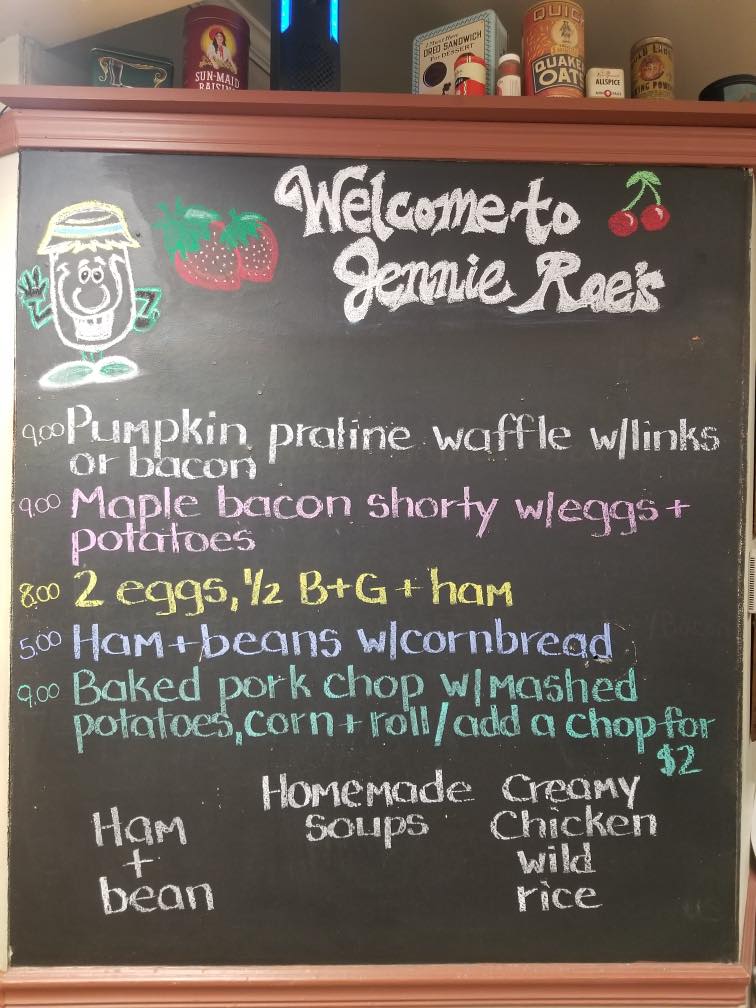 SUN-MAID
RAISINS
I Must Have
OREO SANDWICH
For DESSERT
QUICK
QUAKER
OATS
ALLSPICE
Welcome to
Jennie Rae's
9.00 Pumpkin praline waffle w/links
or bacon
9.00 Maple bacon shorty w/eggs +
potatoes
8.00 2 eggs, 1/2 B+G + ham
5.00 Ham + beans w/cornbread
9.00 Baked pork chop w/mashed
potatoes, corn + roll/add a chop for
$2
Homemade
soups
Ham
+
bean
Creamy
Chicken
wild
rice